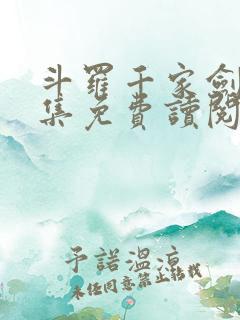 斗羅千家劍
集免費讀閱
予諾溫涼
未经同意禁止转载